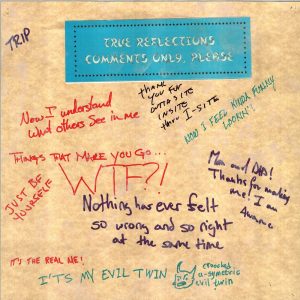 TRIP
TRUE REFLECTIONS
COMMENTS ONLY, PLEASE
Now I understand
what others see in me
THANK
YOU FOR
INSITE
thru I-SITE
NOW I FEEL KINDA FUNNY
LOOKIN'
THINGS THAT MAKE YOU GO...
WTF?!
JUST BE
YOURSELF
Mom and DAD!
Thanks for making
me! I am
Nothing has ever felt
so wrong and so right
at the same time
IT'S THE REAL ME!
I'TS MY EVIL TWIN
crooked
a-symetric
evil twin